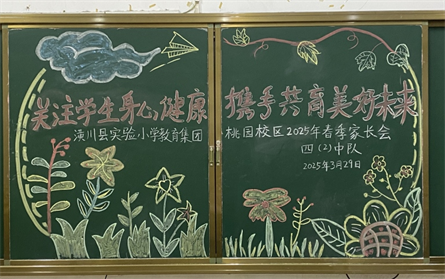 关注学生身心健康 携手共育美好未来
潢川县实验小学教育集团 桃园校区2025年春季家长会
四(2)中队
2025年3月29日